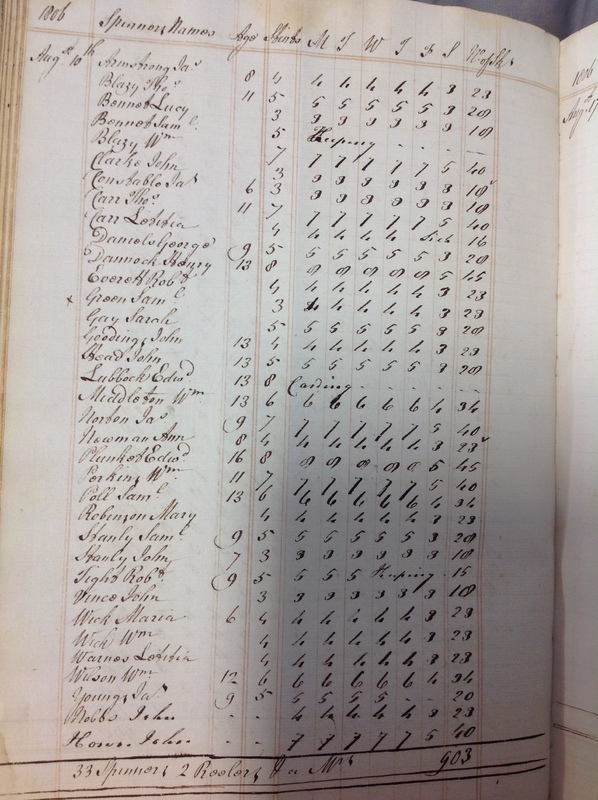 1806 Spinners Names Age Stints M T W T F S No of Sks 1806
Augst 10th Armstrong Jas 8 4 4 4 4 4 4 3 23
Blazy Thos 11 5 5 5 5 5 5 3 28
Bennet Lucy 3 3 3 3 3 3 3 18
Bennet Saml 5 Keeping - - - -
Blazy Wm 7 7 7 7 7 7 5 40
Clarke John 3 3 3 3 3 3 3 18
Constable Jas 6 3 3 3 3 3 3 3 18
Carr Thos 11 7 7 7 7 7 7 5 40
Carr Lætitia 4 4 4 4 4 Sick 16
Daniels George 9 5 5 5 5 5 5 3 28
Dannock Henry 13 8 8 8 8 8 8 5 45
Everett Robt 4 4 4 4 4 4 3 23
x Green Saml 3 4 4 4 4 4 3 23
Gay Sarah 5 5 5 5 5 5 3 28
Gooding John 13 4 4 4 4 4 4 3 23
Head John 13 5 5 5 5 5 5 3 28
Lubbock Edwd 13 8 Carding - - - - -
Middleton Wm 13 6 6 6 6 6 6 4 34
Norton Jas 9 7 7 7 7 7 7 5 40
Newman Ann 8 4 4 4 4 4 4 3 23
Plunket Edwd 16 8 8 8 8 8 8 5 45
Perkins Wm 11 7 7 7 7 7 7 5 40
Poll Saml 13 6 6 6 6 6 6 4 34
Robinson Mary 4 4 4 4 4 4 3 23
Stanly Saml 9 5 5 5 5 5 5 3 28
Stanly John 7 3 3 3 3 3 3 3 18
Tight Robt 9 5 5 5 5 Keeping 15
Vince John 3 3 3 3 3 3 3 18
Wick Maria 6 4 4 4 4 4 4 3 23
Wick Wm 4 4 4 4 4 4 3 23
Warnes Lætitia 4 4 4 4 4 4 3 23
Wilson Wm 12 6 6 6 6 6 6 4 34
Young Jas 9 5 5 5 5 5 - - 20
Nobbs John - - 4 4 4 4 4 3 23
Howes John - - 7 7 7 7 7 5 40
33 Spinners 2 Reelers & a Mrs 903